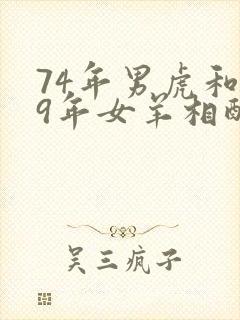 74年男虎和
9年女羊相配
吴三疯子